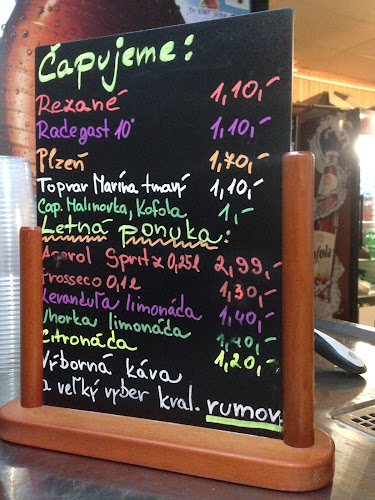 Čapujeme:
Rezané 1,10,-
Radegast 10° 1,10,-
Plzeň 1,70,-
Topvar Marína tmavý 1,10,-
Čap. Malinovka, Kofola 1,-
Letná ponuka:
Aperol Spritz 0,25l 2,99,-
Prosseco 0,1l 1,30,-
Levanduľa limonáda 1,40,-
Uhorka limonáda 1,40,-
Citronáda 1,20,-
Výborná káva
a veľký výber kval. rumov.